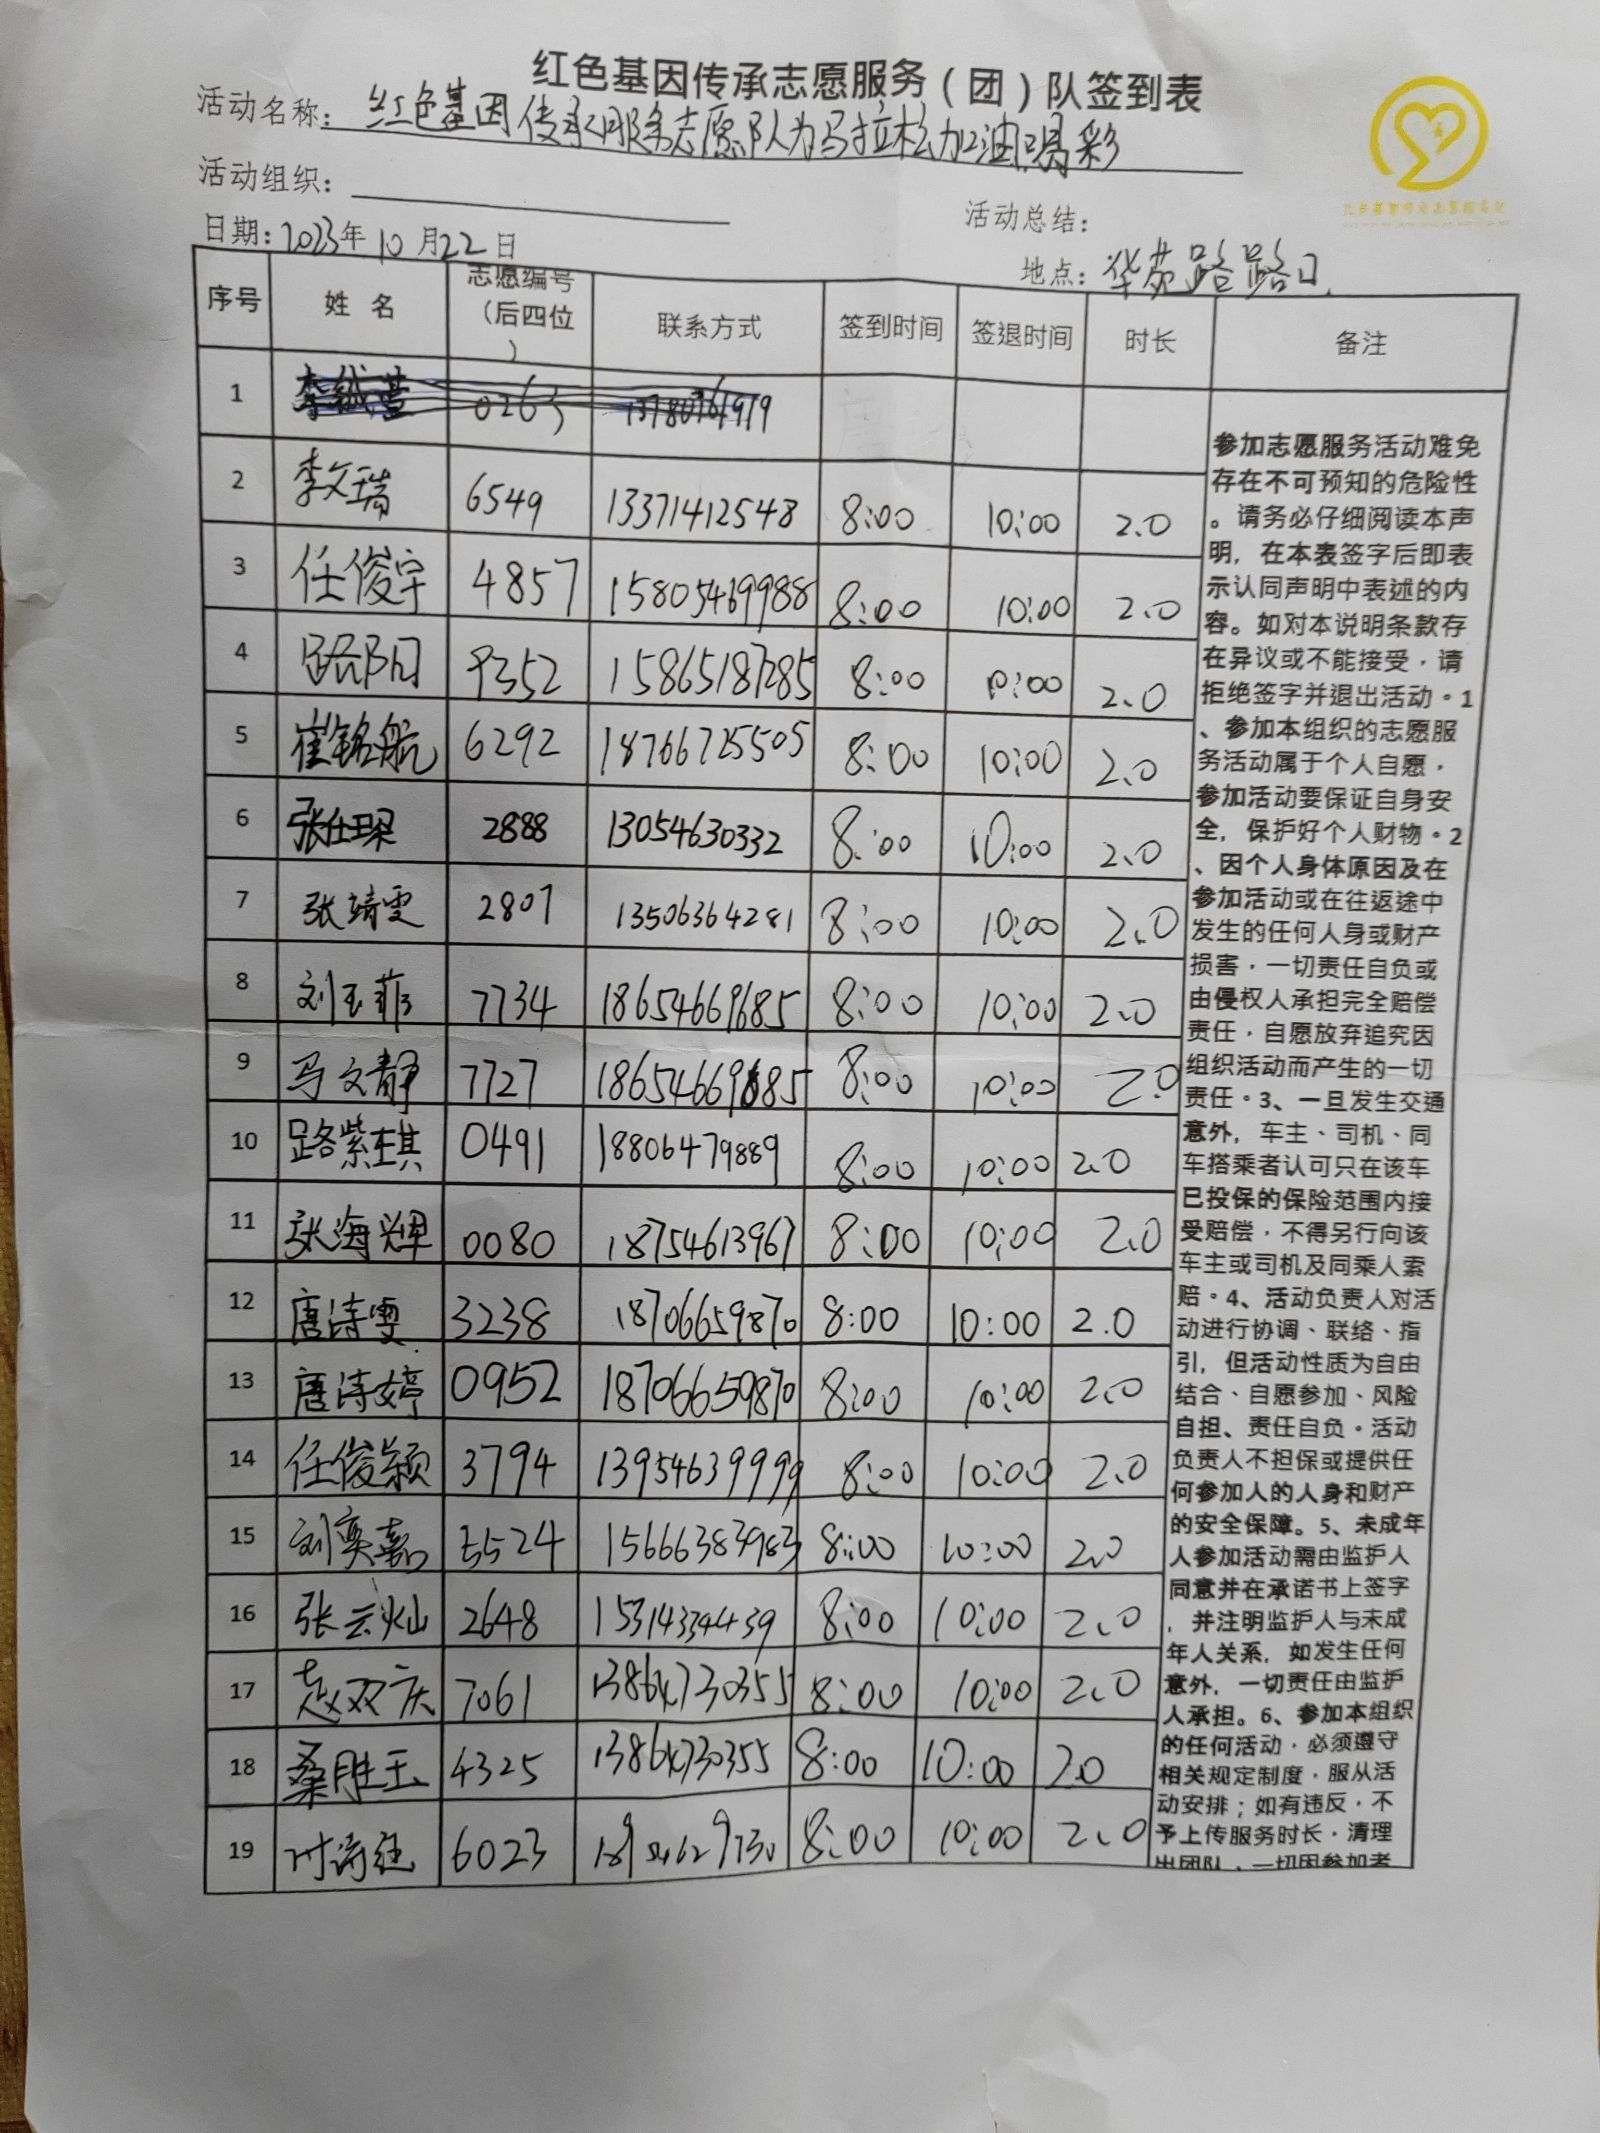 红色基因传承志愿服务（团）队签到表
活动名称：红色基因传承服务志愿队为马拉松加油喝彩
活动组织：
活动总结：
日期：2023年10月22日
地点：华苑路路口
序号 姓名 志愿编号（后四位） 联系方式 签到时间 签退时间 时长 备注
1 0263 13780761979
2 李文瑞 6549 13371412548 8:00 10:00 2.0
3 任俊宇 4857 15805469988 8:00 10:00 2.0
4 路阳 9352 15865187285 8:00 10:00 2.0
5 崔铭航 6292 18766725505 8:00 10:00 2.0
6 张仕琛 2888 13054630332 8:00 10:00 2.0
7 张靖雯 2807 13506364281 8:00 10:00 2.0
8 刘玉菲 7734 18654669685 8:00 10:00 2.0
9 马文静 7727 18654669685 8:00 10:00 2.0
10 路紫琪 0491 18806479889 8:00 10:00 2.0
11 张海辉 0080 18754613967 8:00 10:00 2.0
12 唐诗雯 3238 18706659870 8:00 10:00 2.0
13 唐诗婷 0952 18706659870 8:00 10:00 2.0
14 任俊颖 3794 13954639999 8:00 10:00 2.0
15 刘奕嘉 5524 15666383983 8:00 10:00 2.0
16 张云灿 2648 15314334439 8:00 10:00 2.0
17 赵双庆 7061 13864730355 8:00 10:00 2.0
18 桑胜玉 4325 13864730355 8:00 10:00 2.0
19 6023 8:00 10:00 2.0
参加志愿服务活动难免
存在不可预知的危险性
。请务必仔细阅读本声
明，在本表签字后即表
示认同声明中表述的内
容。如对本说明条款存
在异议或不能接受，请
拒绝签字并退出活动。1
、参加本组织的志愿服
务活动属于个人自愿，
参加活动要保证自身安
全，保护好个人财物。2
、因个人身体原因及在
参加活动或在往返途中
发生的任何人身或财产
损害，一切责任自负或
由侵权人承担完全赔偿
责任，自愿放弃追究因
组织活动而产生的一切
责任。3、一旦发生交通
意外，车主、司机、同
车搭乘者认可只在该车
已投保的保险范围内接
受赔偿，不得另行向该
车主或司机及同乘人索
赔。4、活动负责人对活
动进行协调、联络、指
引，但活动性质为自由
结合、自愿参加、风险
自担、责任自负。活动
负责人不担保或提供任
何参加人的人身和财产
的安全保障。5、未成年
人参加活动需由监护人
同意并在承诺书上签字
，并注明监护人与未成
年人关系，如发生任何
意外，一切责任由监护
人承担。6、参加本组织
的任何活动，必须遵守
相关规定制度，服从活
动安排；如有违反，不
予上传服务时长，清理
出团队，一切因参加者